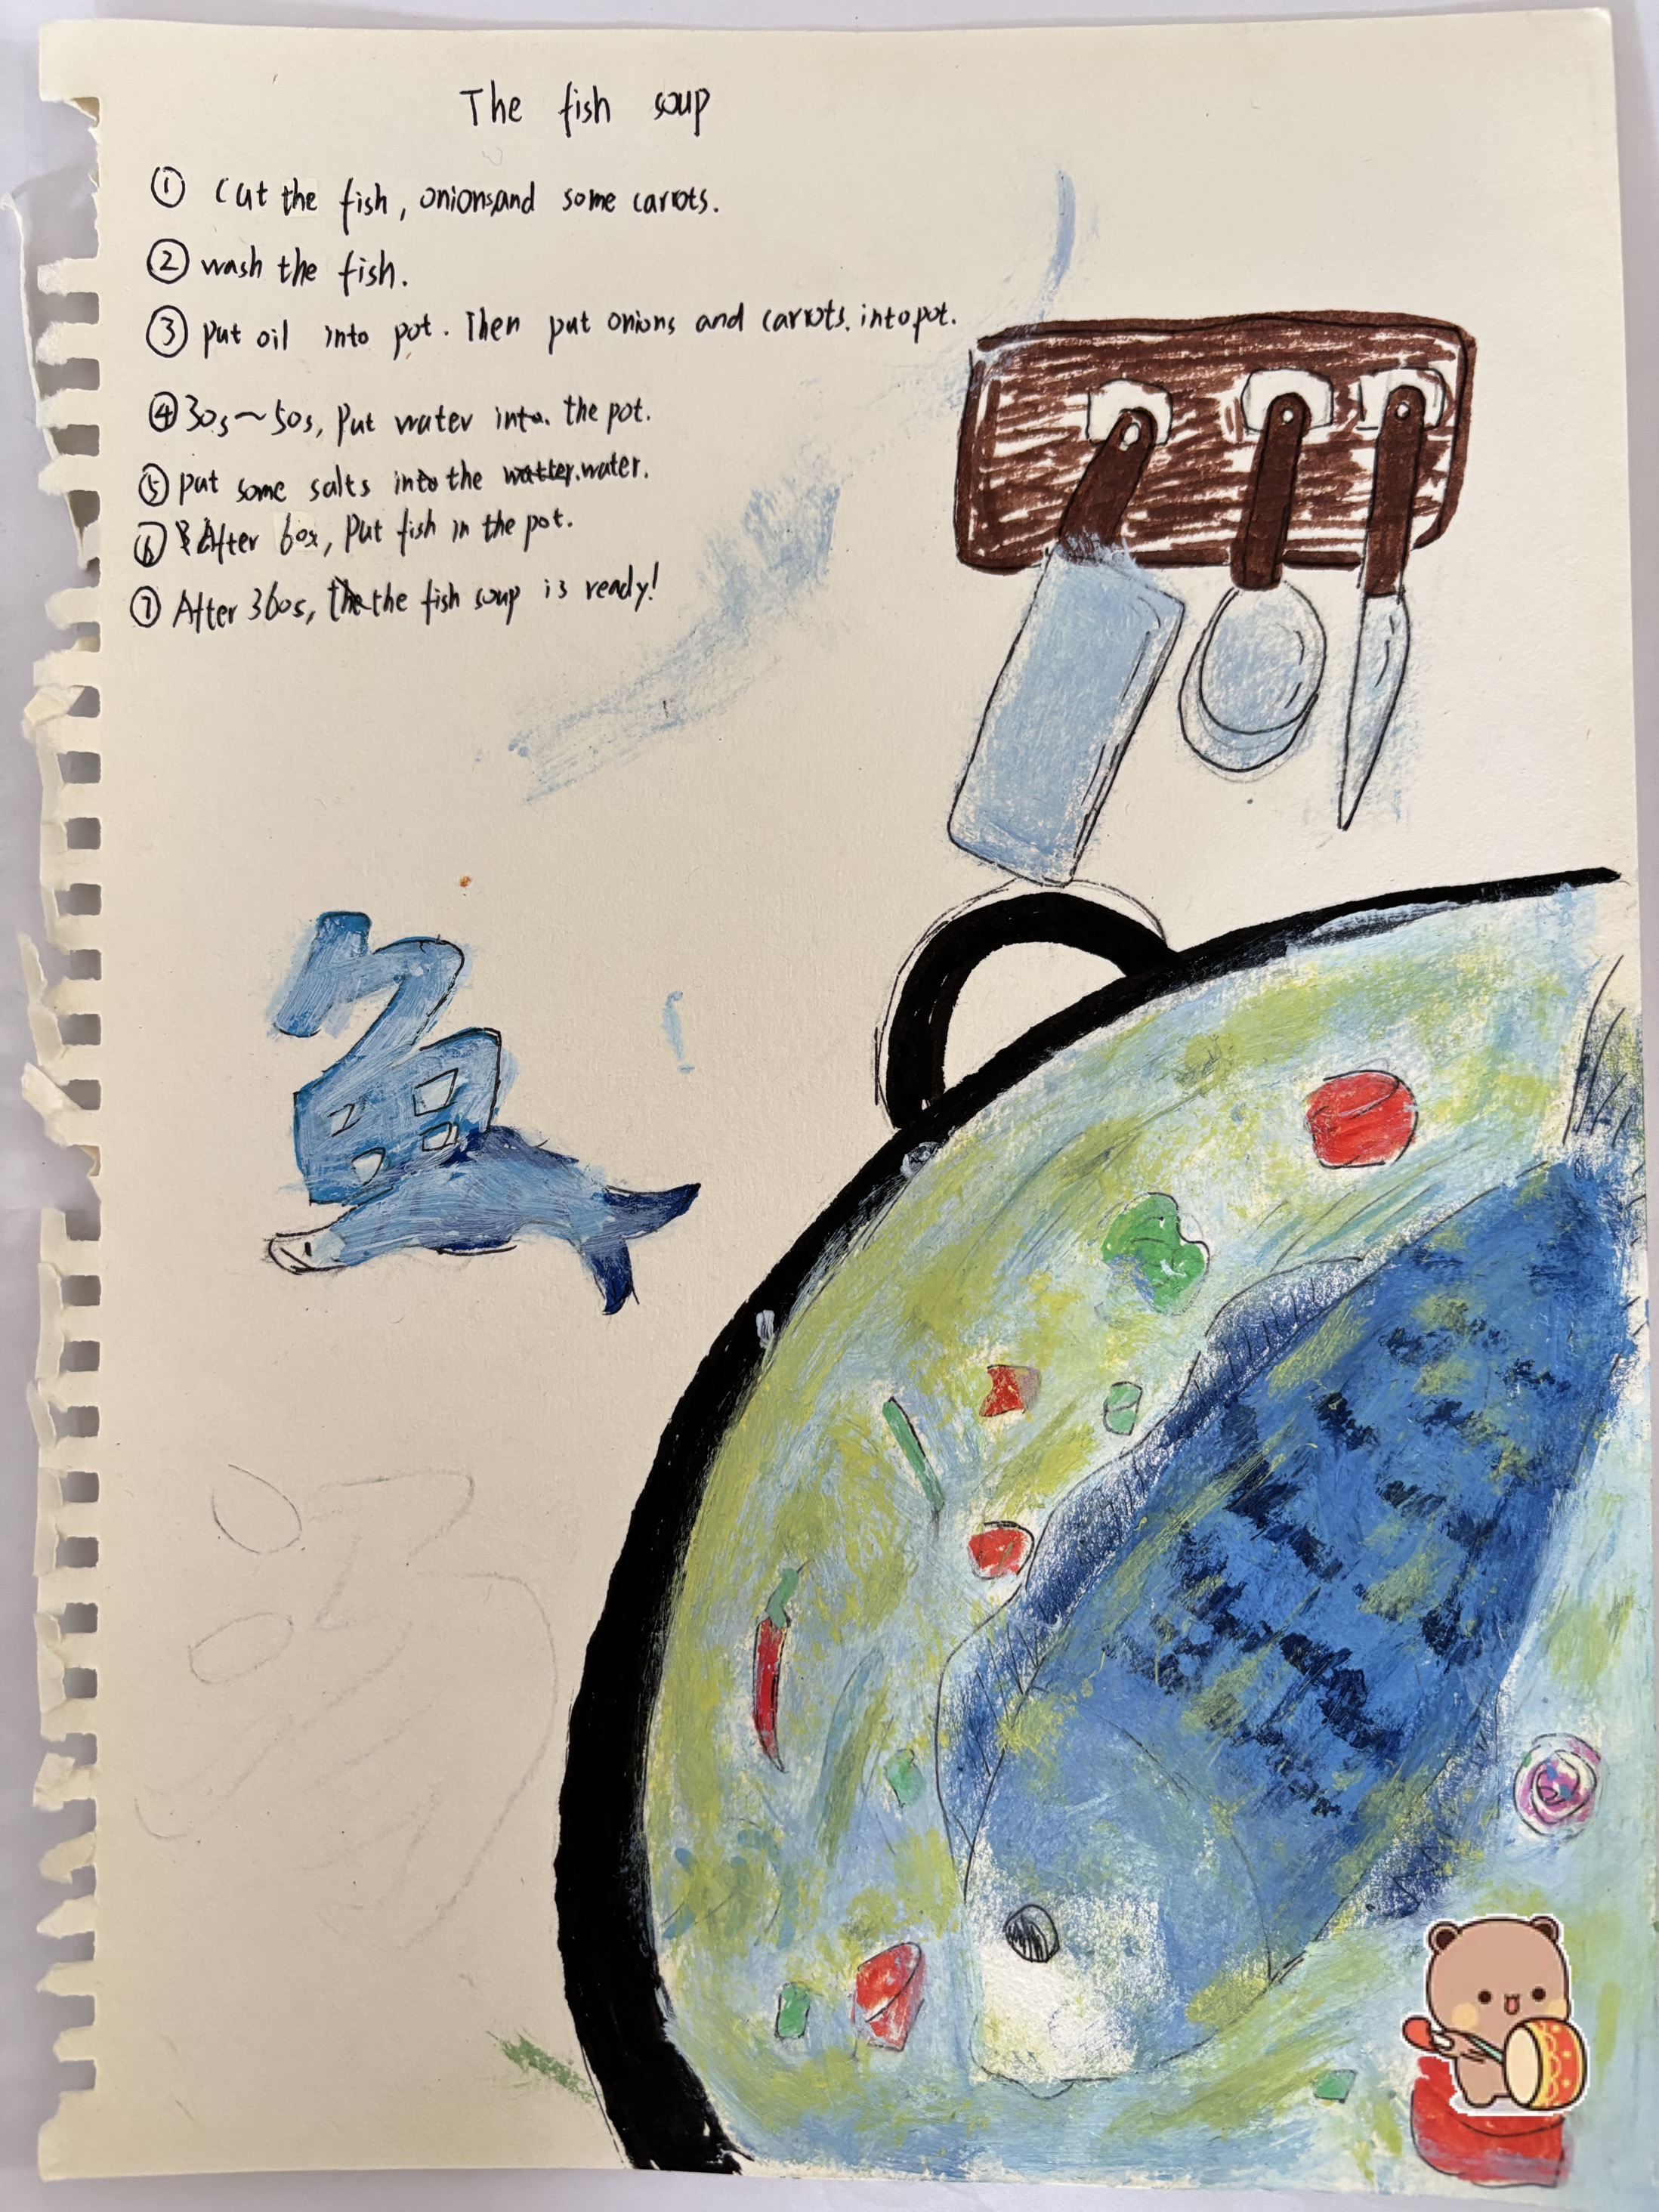 The fish soup
① Cut the fish, onions,and some carrots.
② wash the fish.
③ put oil into pot. Then put onions and carrots. into pot.
④ 30s~50s, Put water into. the pot.
⑤ put some salts into the water.
⑥ After 60s, Put fish in the pot.
⑦ After 360s, the fish soup is ready!
鱼
汤